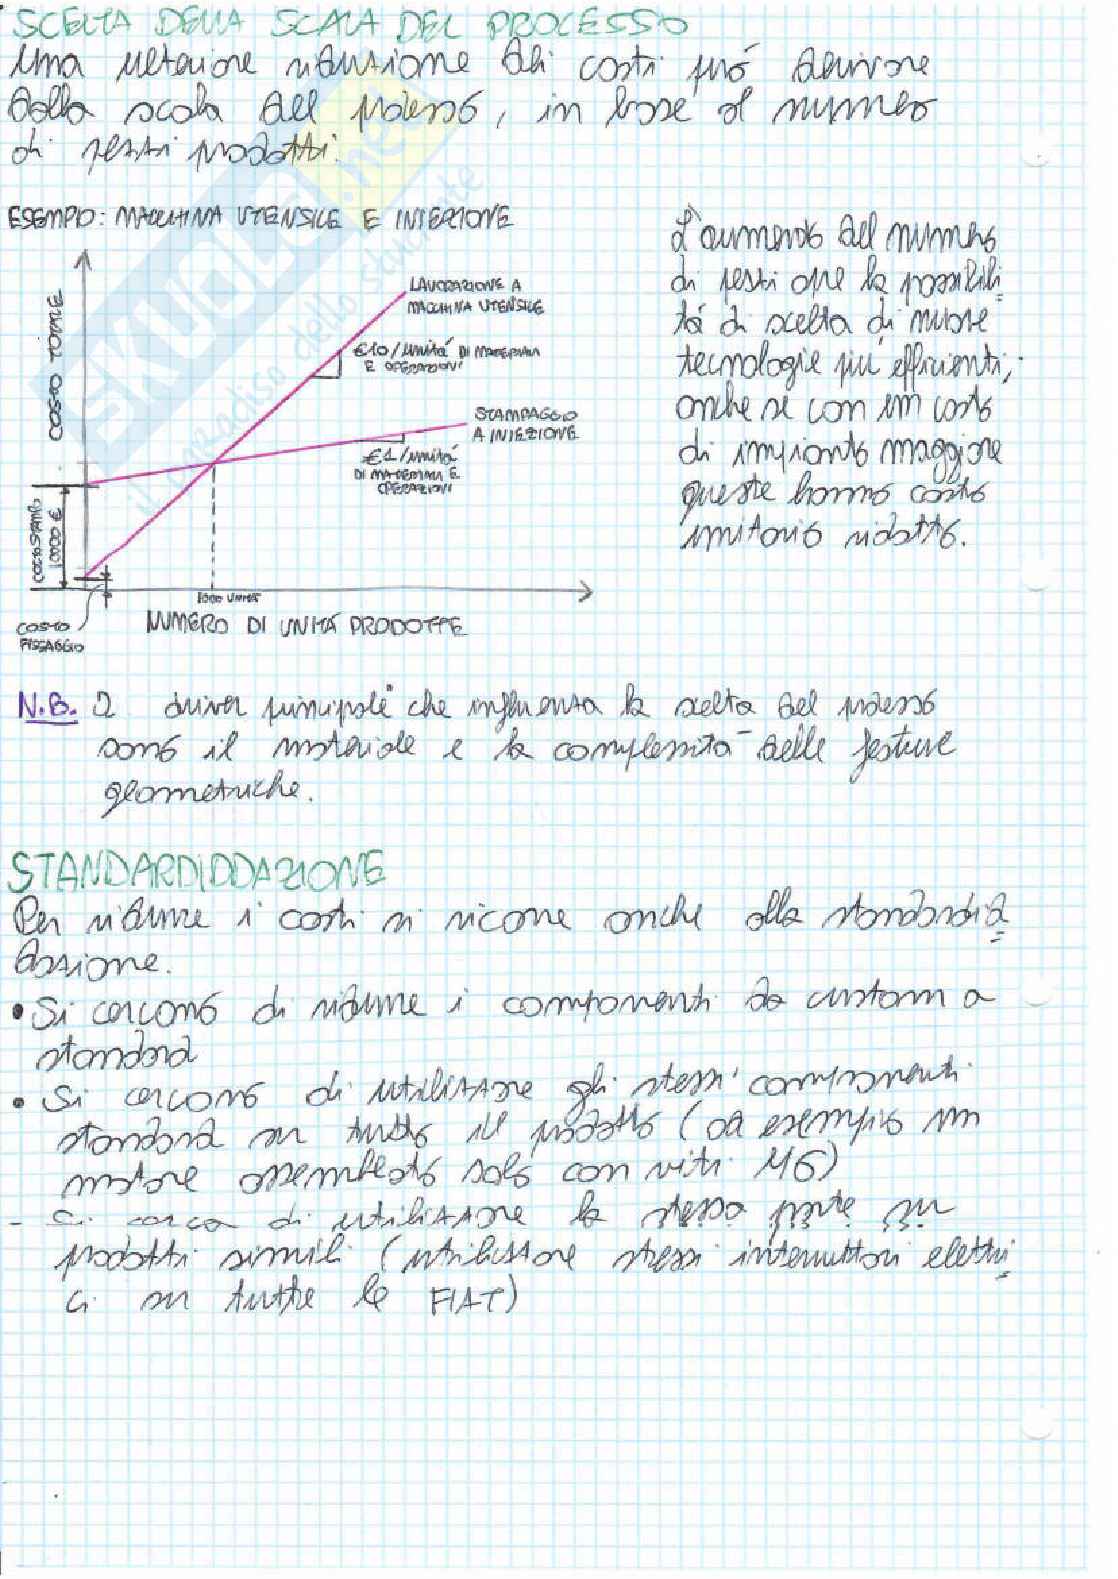 SCELTA DELLA SCALA DEL PROCESSO
Una ulteriore riduzione dei costi può derivare
dalla scala del processo, in base al numero
di pezzi prodotti.
ESEMPIO: MACCHINA UTENSILE E INIEZIONE
COSTO TOTALE
LAVORAZIONE A
MACCHINA UTENSILE
€10/unità DI MATERIALI
E OPERAZIONI
STAMPAGGIO
A INIEZIONE
€1/unità
DI MATERIALI E
OPERAZIONI
COSTO STAMPO
10000 €
1000 UNITÀ
COSTO
FISSAGGIO
NUMERO DI UNITÀ PRODOTTE
L'aumento del numero
di pezzi apre la possibili
tà di scelta di nuove
tecnologie più efficienti,
anche se con un costo
di impianto maggiore
queste hanno costo
unitario ridotto.
N.B. I driver principale che influenza la scelta del processo
sono il materiale e la complessità delle feature
geometriche.
STANDARDIZZAZIONE
Per ridurre i costi si ricorre anche alla standardiz
zazione.
• Si cercano di ridurre i componenti da custom a
standard
• Si cercano di utilizzare gli stessi componenti
standard su tutto il prodotto (ad esempio un
motore assemblato solo con viti M6)
- Si cerca di utilizzare la stessa parte su
prodotti simili (utilizzare stessi interruttori elettri
ci su tutte le FIAT)
skuola.net
il paradiso dello studente